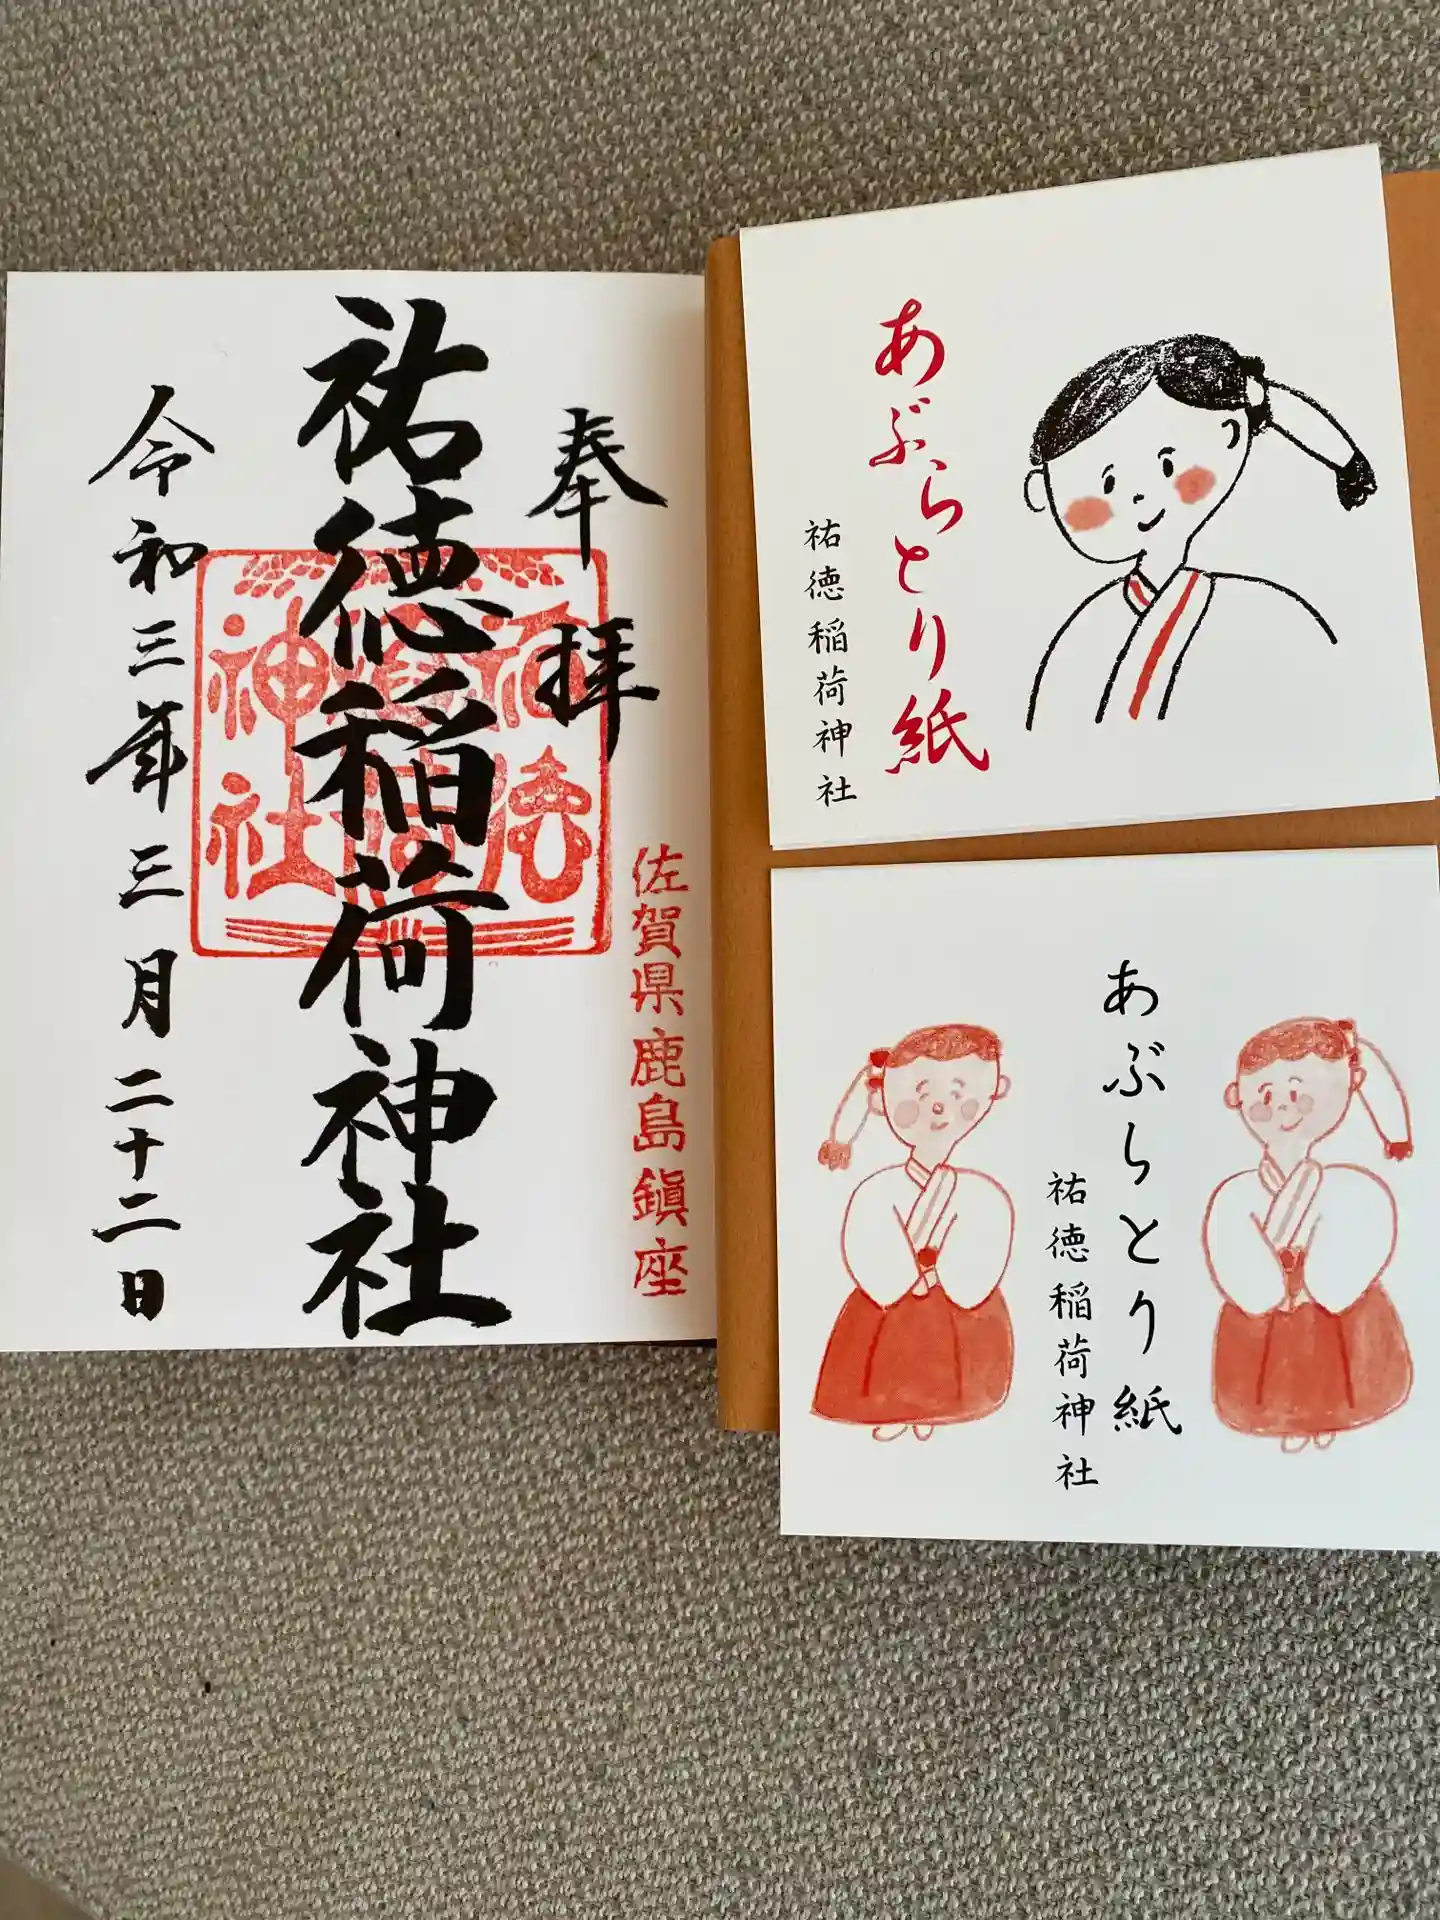 奉拝
佐賀県鹿島鎮座
祐徳稲荷神社
祐徳
稲荷
神社
令和三年三月二十二日
あぶらとり紙
祐徳稲荷神社
あぶらとり紙
祐徳稲荷神社